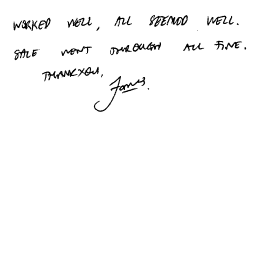 WORKED WELL, ALL SEEMED WELL.
SALE WENT THROUGH ALL FINE.
THANKYOU,
James.